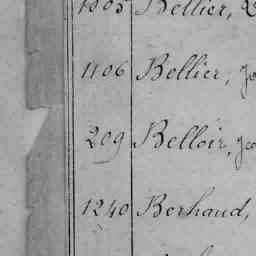 1805 Bellier,
1106 Bellier, Je
209 Belloir, Jea
1240 Berhaud,